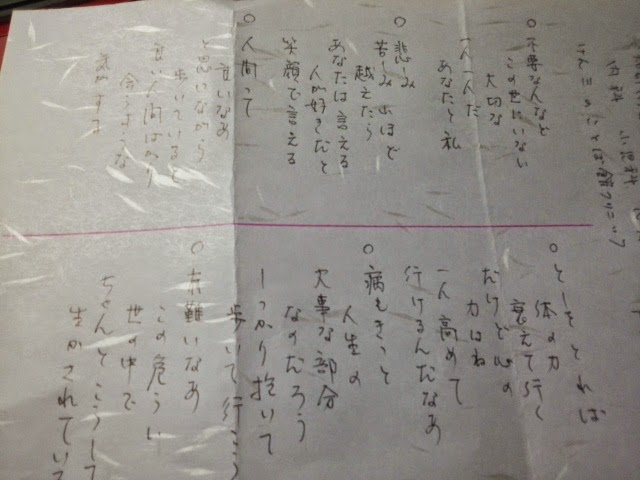 内科 小児科
○不要な人など
この世にいない
大切な
一人一人だ
あなたと私
○悲しみ
苦しみ山ほど
越えたら
あなたは言える
人が好きだと
笑顔で言える
○人間って
良いなあ
と思いながら
歩いていると
良い人間ばかり
会うような
気がする
○としをとれば
体の力
衰えて行く
だけど心の
力はね
一人高めて
行けるんだなあ
○病もきっと
人生の
大事な部分
なのだろう
しっかり抱いて
歩いて行こう
○有難いなあ
この危うい
世の中で
ちゃんとこうして
生かされてい